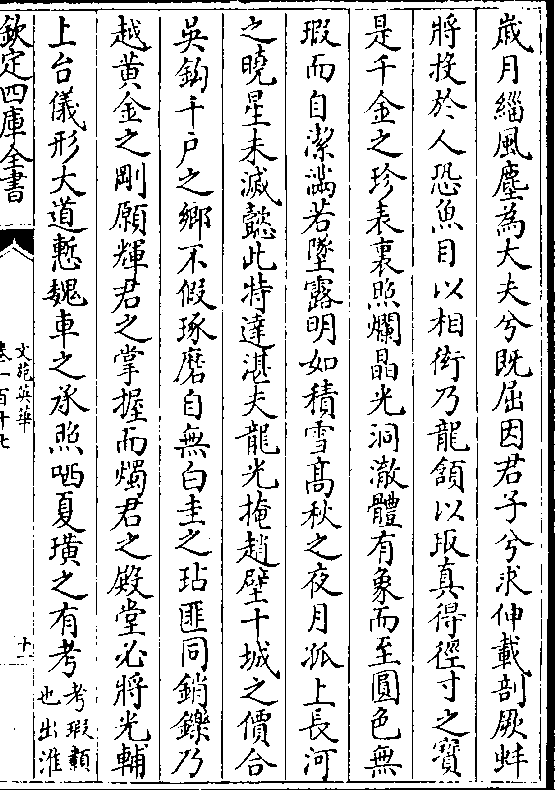 歲月緇風塵為大夫兮既屈因君子兮求伸載剖厥蚌
將投於人恐魚目以相衒乃龍頷以取真得徑寸之寶
是千金之珍表裏照爛晶光洞澈體有象而至圓色無
瑕而自潔滿若墜露明如積雪高秋之夜月孤上長河
之曉星未滅懿此特達湛夫龍光掩趙璧十城之價合
吳鈎千戸之鄉不假琢磨自無白圭之玷匪同銷鑠乃
越黃金之剛願輝君之掌握而燭君之殿堂必將光輔
上台儀形大道慙魏車之承照哂夏璜之有考考瑕纇
也出淮
欽定四庫全書
文苑英華
卷一百十七
十一